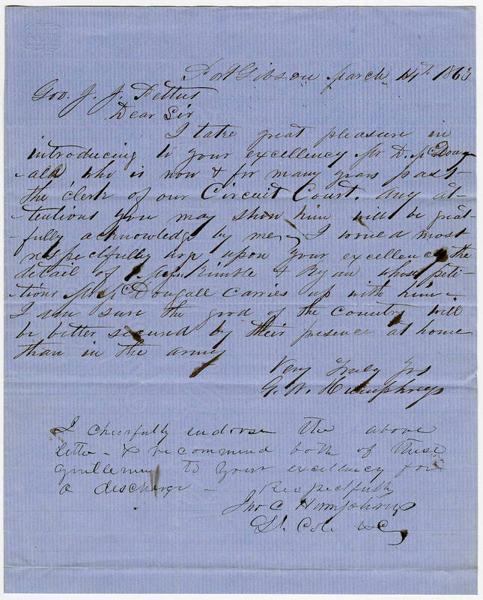 Port Gibson March 14th 1863
Gov. J. J. Pettus
Dear Sir
I take great pleasure in
introducing to your excellency Mr D. McDoug-
ald who is now & for many years past
the clerk of our Circuit Court. Any at-
tentions you may show him will be great-
fully acknowledge by me. I would most
respectfully urge upon your excellency the
detail of Kimble & Ryan whose peti-
tions Mr McDougall carries up with him.
I am sure the good of the country will
be better secured by their presence at home
than in the army
Very Truly Yrs
G. W. Humphreys
I cheerfully endorse the above
letter & recommend both of these
gentlemen to your excellency for
a discharge —
Respectfully
Jno C Humphreys
Lt. Col. &c